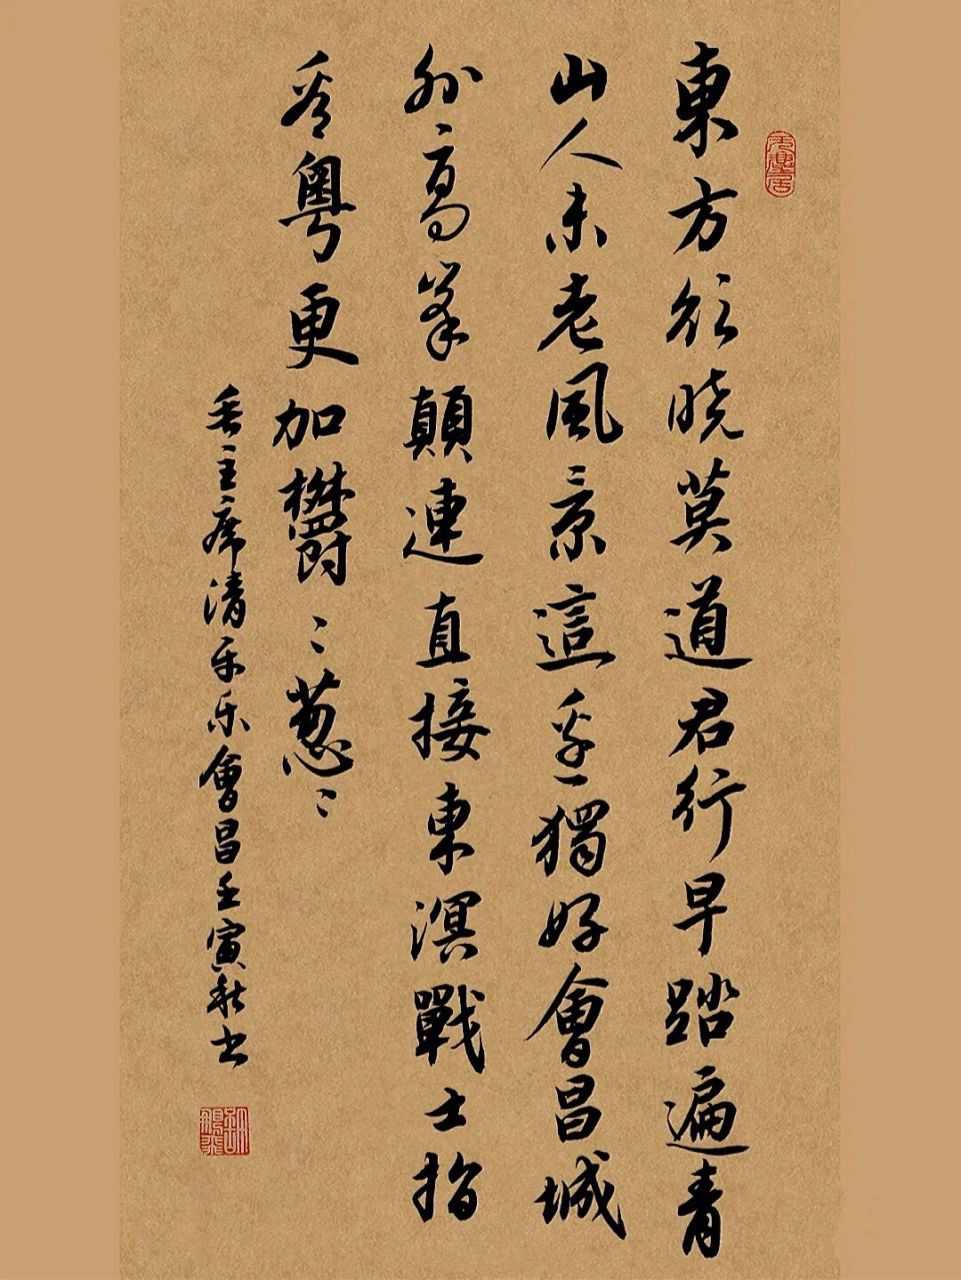 東方欲晓莫道君行早踏遍青
山人未老風景這邊獨好會昌城
外高峯顛連直接東溟戰士指
看粵更加鬱〻葱〻
毛主席清平乐會昌壬寅秋书